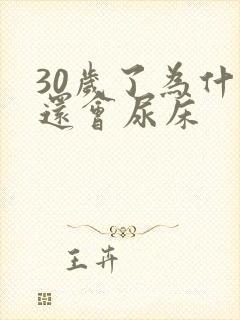 30歲了為什
還會尿床
王卉